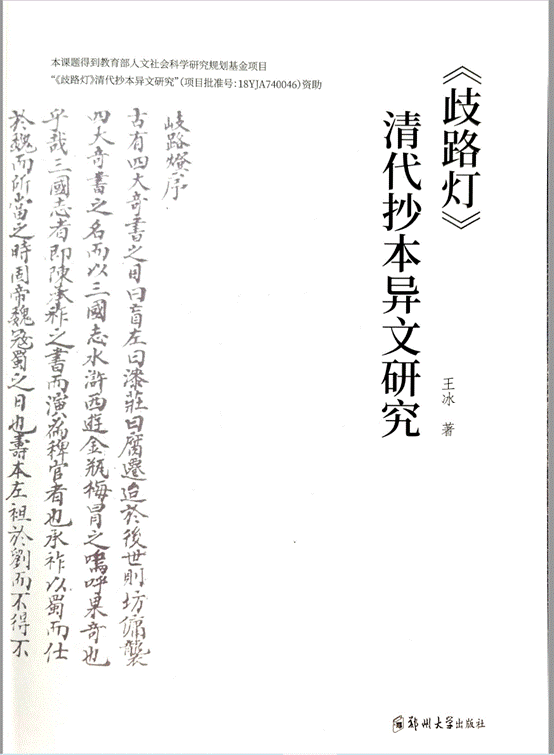 本课题得到教育部人文社会科学研究规划基金项目
“《歧路灯》清代抄本异文研究”(项目批准号:18YJA740046)资助
《歧路灯》
清代抄本异文研究
王冰 著
岐路燈序
古有四大奇書之目曰盲左曰漆莊曰腐遷迨於後世則坊傭襲
四大奇書之名而以三國志水滸西遊金瓶梅冒之嗚呼果奇也
乎哉三國志者即陳承祚之書而演為稗官者也承祚以蜀而仕
於魏而所當之時固帝魏寇蜀之日也壽本左袒於劉而不得不
郑州大学出版社